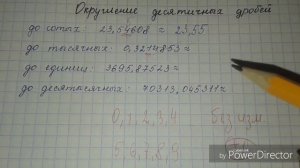 Округление десятичных дробей
до сотых: 23,54608 ≈ 23,55
до тысячных: 0,3214853 ≈
до единиц: 3695,87523 ≈
до десятитысячных: 70313,045311 ≈
0,1,2,3,4 без изм
5,6,7,8,9
PowerDirector